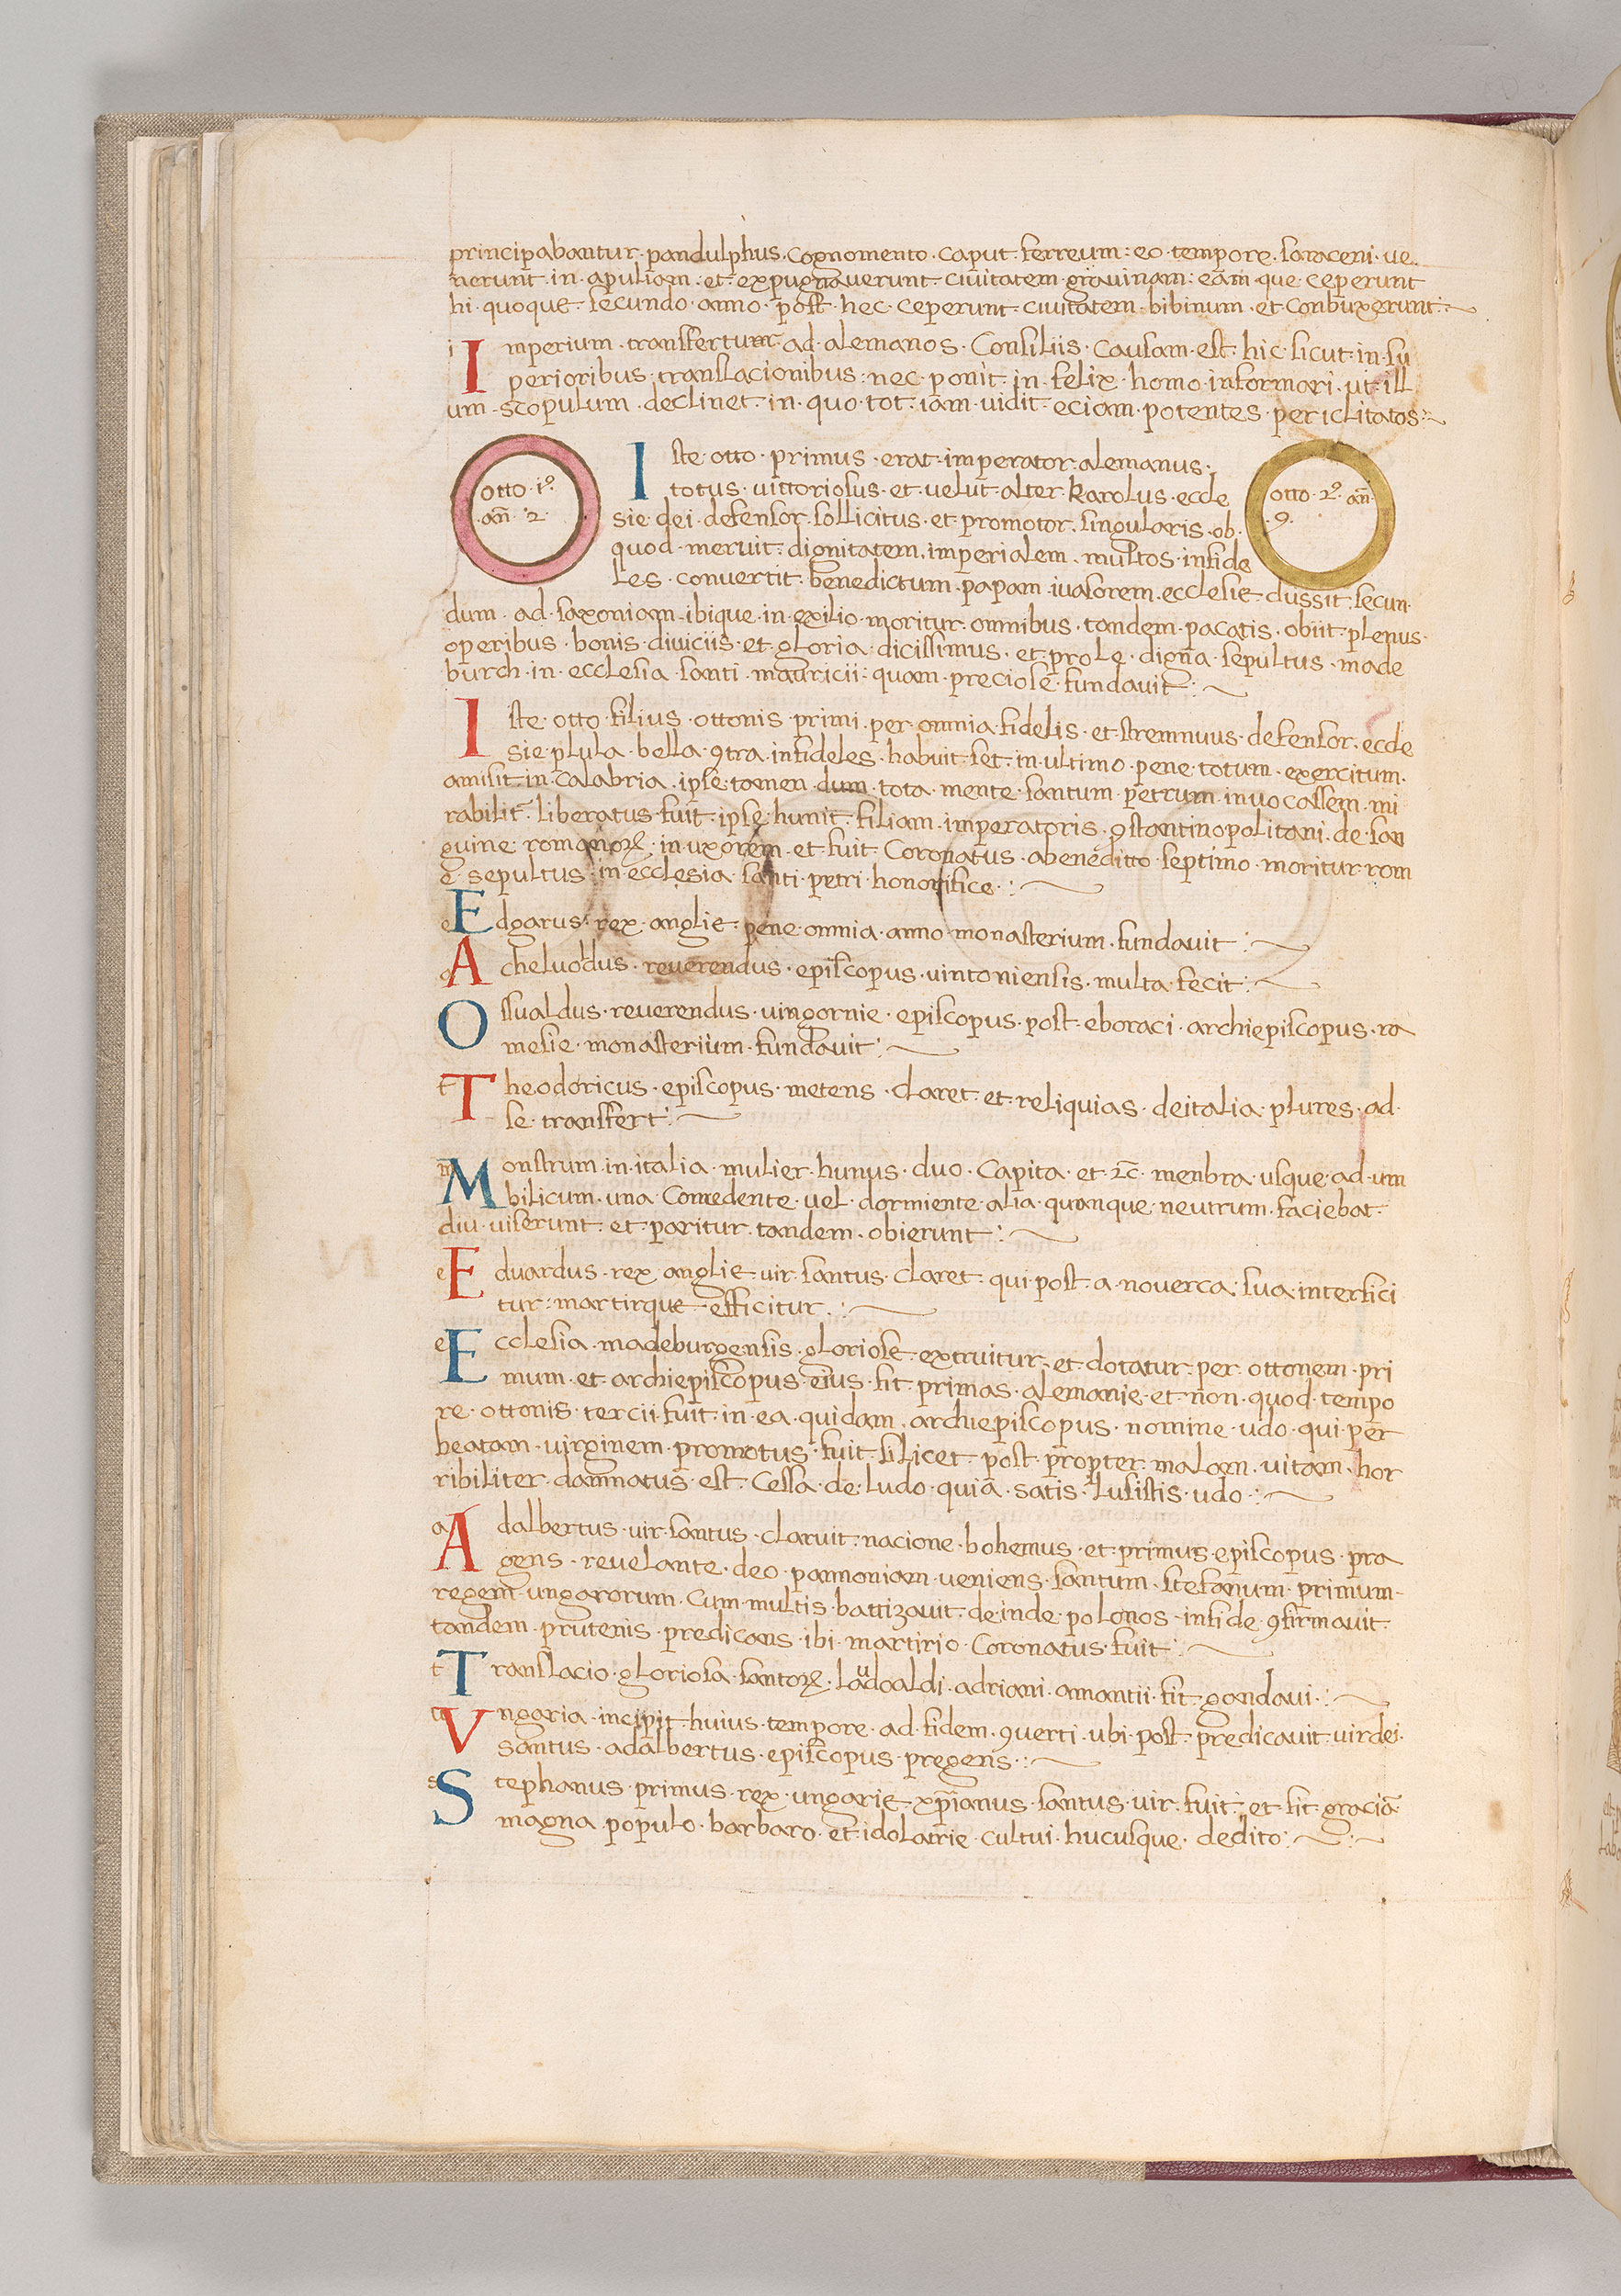 principabantur · pandulphus · cognomento · caput · ferreum : eo · tempore · saraceni · ve
nerunt · in · apuliam : et · expugnaverunt · civitatem · gravinam : eam · que · ceperunt
hi · quoque · secundo · anno · post · hec · ceperunt · civitatem · bibinum · et · conbuxerunt :
i Imperium · transfertur · ad · alemanos · Consiliis · causam · est · hic · sicut · in · su
perioribus · translacionibus : nec · ponit · in · felix · homo · informari · ut · ill
um · scopulum · declinet · in · quo · tot · iam · vidit · eciam · potentes · periclitatos :
otto · i°.
an̄ · 2
otto · 2°. an̄
· 9 ·
Iste · otto · primus · erat · imperator · alemanus ·
totus · vittoriosus · et · velut · alter · karolus · eccle
sie · dei · defensor · sollicitus · et · promotor · singularis · ob ·
quod · meruit · dignitatem · imperialem · multos · infide
les · convertit · benedictum · papam · ivasorem · ecclesie · dussit · secun
dum · ad · saxoniam · ibique · in · exilio · moritur · omnibus · tandem · pacatis · obiit · plenus ·
operibus · bonis · diviciis · et · gloria · dicissimus · et · prole · digna · sepultus · made
burch · in · ecclesia · santi · mauricii : quam · preciose · fundavit :
Iste · otto · filius · ottonis · primi · per · omnia · fidelis · et · stremnuus · defensor · eccle
sie · plula · bella · 9tra · infideles · habuit · set · in · ultimo · pene · totum · exercitum ·
amisit · in · calabria · ipse · tamen · dum · tota · mente · santum · petrum · invocassem · mi
rabilit̄ · liberatus · fuit · ipse · hunit · filiam · imperatoris · 9stantinopolitani · de · san
guine · romanoꝝ · in · uxorem · et · fuit · Coronatus · abeneditto · septimo · moritur · rom
e · sepultus · in · ecclesia · santi · petri · honorifice :
e Edgarus · rex · anglie · pene · omnia · anno · monasterium · fundavit :
a Acheluoldus · reverendus · episcopus · vintoniensis · multa · fecit :
Ossualdus · reverendus · vingornie · episcopus · post · eboraci · archiepiscopus · ra
mesie · monasterium · fundavit :
t Theodoricus · episcopus · metens · claret · et · reliquias · deitalia · plures · ad ·
se · transfert :
m Monstrum · in · italia · mulier · hunus · duo · Capita · et · 2c̄ · menbra · usque · ad · um
bilicum · una · Comedente · vel · dormiente · alia · quanque · neutrum · faciebat ·
diu · viserunt · et · paritur · tandem · obierunt :
e Eduardus · rex · anglie · vir · santus · claret · qui · post · a · noverca · sua · interfici
tur : martirque · efficitur ·
e Ecclesia · madeburgensis · gloriose · extruitur · et · dotatur · per · ottonem · pri
mum · et · archiepiscopus · eius · fit · primas · alemanie · et · non · quod · tempo
re · ottonis · tercii · fuit · in · ea · quidam · archiepiscopus · nomine · udo · qui · per
beatam · virginem · promotus · fuit · silicet · post · propter · malam · vitam · hor
ribiliter · damnatus · est · Cessa · de · ludo · quia · satis · lusistis · udo :
a Adalbertus · vir · santus · claruit · nacione · bohemus · et · primus · episcopus · pra
gens · revelante · deo · pannoniam · veniens · santum · stefanum · primum ·
regem · ungarorum · Cum · multis · battizavit · deinde · polonos · infide · 9firmavit ·
tandem · prutenis · predicans · ibi · martirio · Coronatus · fuit :
t Translacio · gloriosa · santoꝝ · laudoaldi · adriani · amantii · fit · gandavi :
u Vngaria · incipit · huius · tempore · ad · fidem · 9verti · ubi · post · predicavit · virdei ·
santus · adalbertus · episcopus · pregens :
s Stephanus · primus · rex · ungarie · xp̄ianus · santus · vir · fuit · et · fit · gracia ·
magna · populo · barbaro · et · idolatrie · cultui · hucusque · dedito :